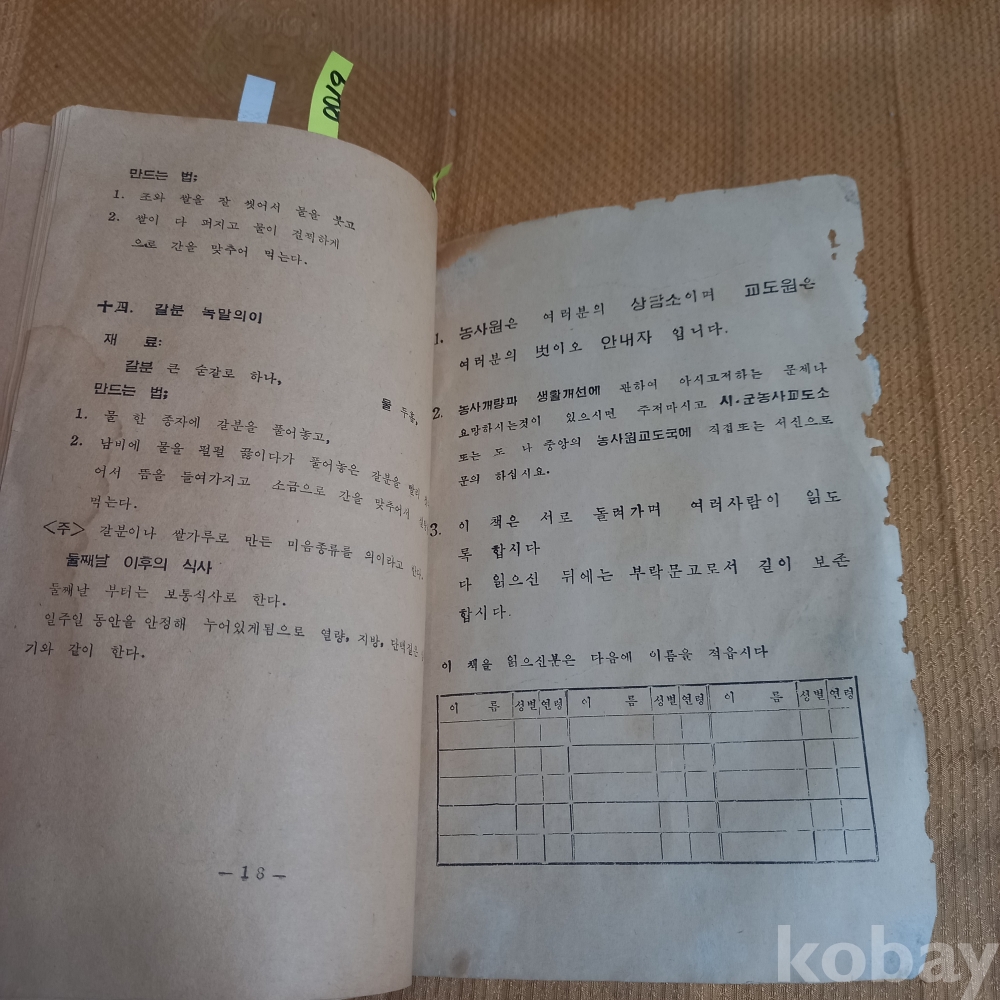 0019
만드는 법;
1. 조와 쌀을 잘 씻어서 물을 붓고
2. 쌀이 다 퍼지고 물이 걸찍하게
으로 간을 맞추어 먹는다.
十四. 갈분 녹말의이
재 료:
갈분 큰 숟갈로 하나, 물 두홉,
만드는 법;
1. 물 한 종자에 갈분을 풀어놓고,
2. 남비에 물을 펄펄 끓이다가 풀어놓은 갈분을 빨리
어서 뜸을 들여가지고 소금으로 간을 맞추어서
먹는다.
<주> 갈분이나 쌀가루로 만든 미음종류를 의이라고 한다.
둘째날 이후의 식사
둘째날 부터는 보통식사로 한다.
일주일 동안을 안정해 누어있게됨으로 열량, 지방, 단백질은
기와 같이 한다.
-18-
1. 농사원은 여러분의 상담소이며 교도원은
여러분의 벗이오 안내자 입니다.
2. 농사개량과 생활개선에 관하여 아시고저하는 문제나
요망하시는것이 있으시면 주저마시고 시.군농사교도소
또는 도 나 중앙의 농사원교도국에 직접또는 서신으로
문의 하십시요.
3. 이 책은 서로 돌려가며 여러사람이 읽도
록 합시다
다 읽으신 뒤에는 부락문고로서 길이 보존
합시다.
이 책을 읽으신분은 다음에 이름을 적읍시다
이 름 성별 연령 이 름 성별 연령 이 름 성별 연령
kobay